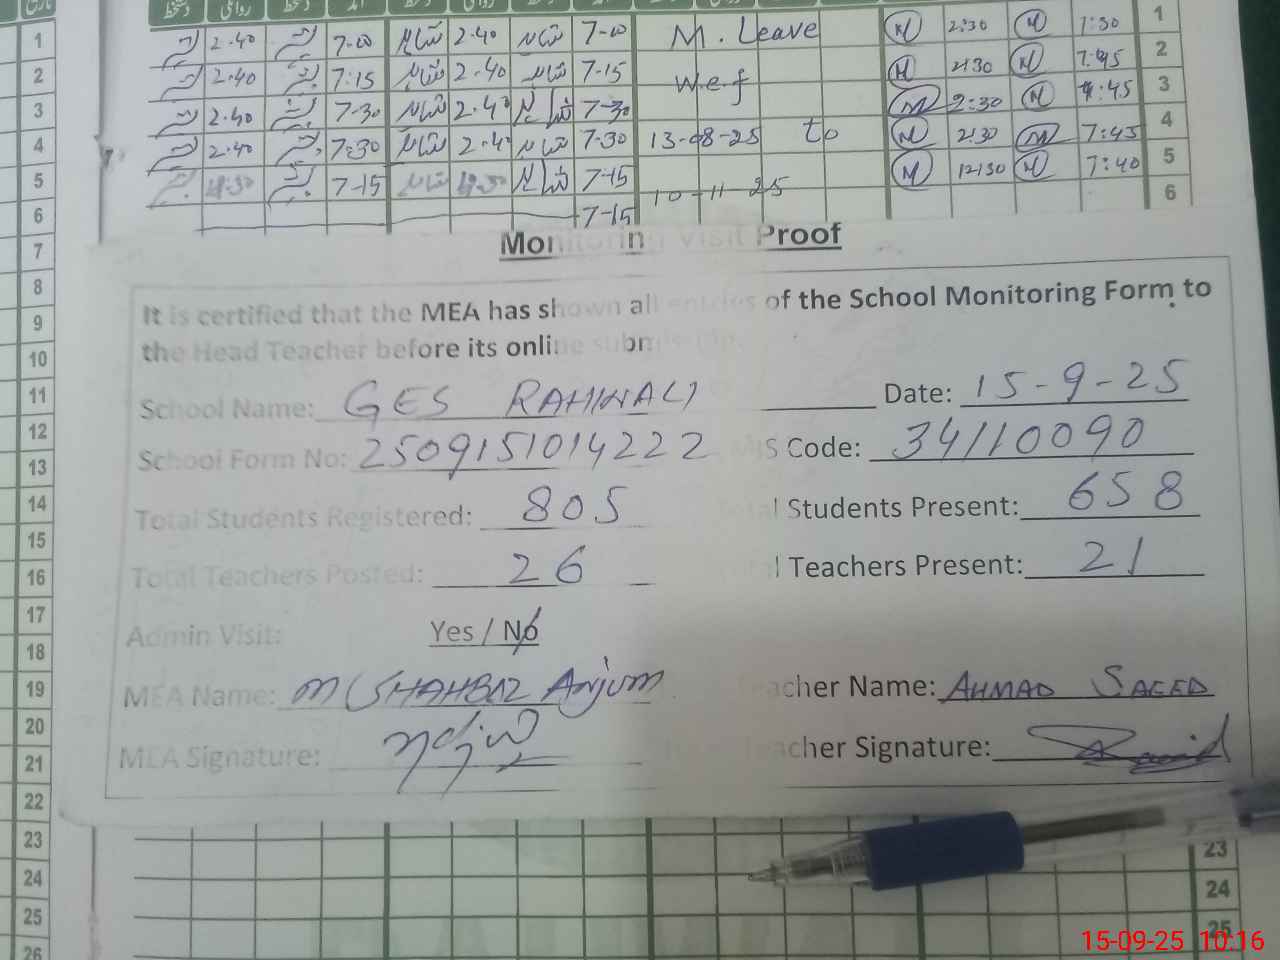 1 2.40 7-00 شاہد 2.40 شاہد 7-00 M. Leave M 2:30 M 7:30 1
2 2.40 7:15 شاہد 2.40 شاہد 7-15 w.e.f M 2:30 M 7:45 2
3 2.40 7-30 شاہد 2.40 شاہد 7-30 M 2:30 M 7:45 3
4 2.40 7:30 شاہد 2.40 شاہد 7-30 13-08-25 to M 2:30 M 7:45 4
5 7-15 شاہد شاہد 7-15 10-11-25 M 12:30 M 7:40 5
6 7-15 6
7 Monitoring Visit Proof
8 It is certified that the MEA has shown all entries of the School Monitoring Form to
9
10 the Head Teacher before its online submission.
11 School Name: GES RAHWALI Date: 15-9-25
12
13 School Form No: 2509151014222 MIS Code: 34110090
14 Total Students Registered: 805 Total Students Present: 658
15
16 Total Teachers Posted: 26 Total Teachers Present: 21
17 Admin Visit: Yes / No
18
19 MEA Name: M SHAHBAZ Anjum Teacher Name: AHMAD SAEED
20
21 MEA Signature: Teacher Signature:
22
23 23
24 24
25 25
26
15-09-25 10:16